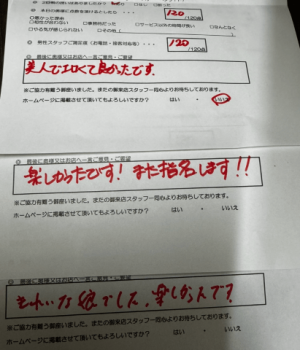 120
/120点
□良かった所を
□相性が良くない □事務的だった □サービス以外の時間が長い □なんとなく
□やる気が感じられない □その他(
120
/120点
美人でエロくて良かったです。
※ご協力有難う御座いました。またの御来店スタッフ一同心よりお待ちしております。
ホームページに掲載させて頂いてもよろしいですか? はい ・ いいえ
楽しかったです!また指名します!!
※ご協力有難う御座いました。またの御来店スタッフ一同心よりお待ちしております。
ホームページに掲載させて頂いてもよろしいですか? はい ・ いいえ
きれいな娘でした。楽しかったです
※ご協力有難う御座いました。またの御来店スタッフ一同心よりお待ちしております。
ホームページに掲載させて頂いてもよろしいですか? はい ・ いいえ